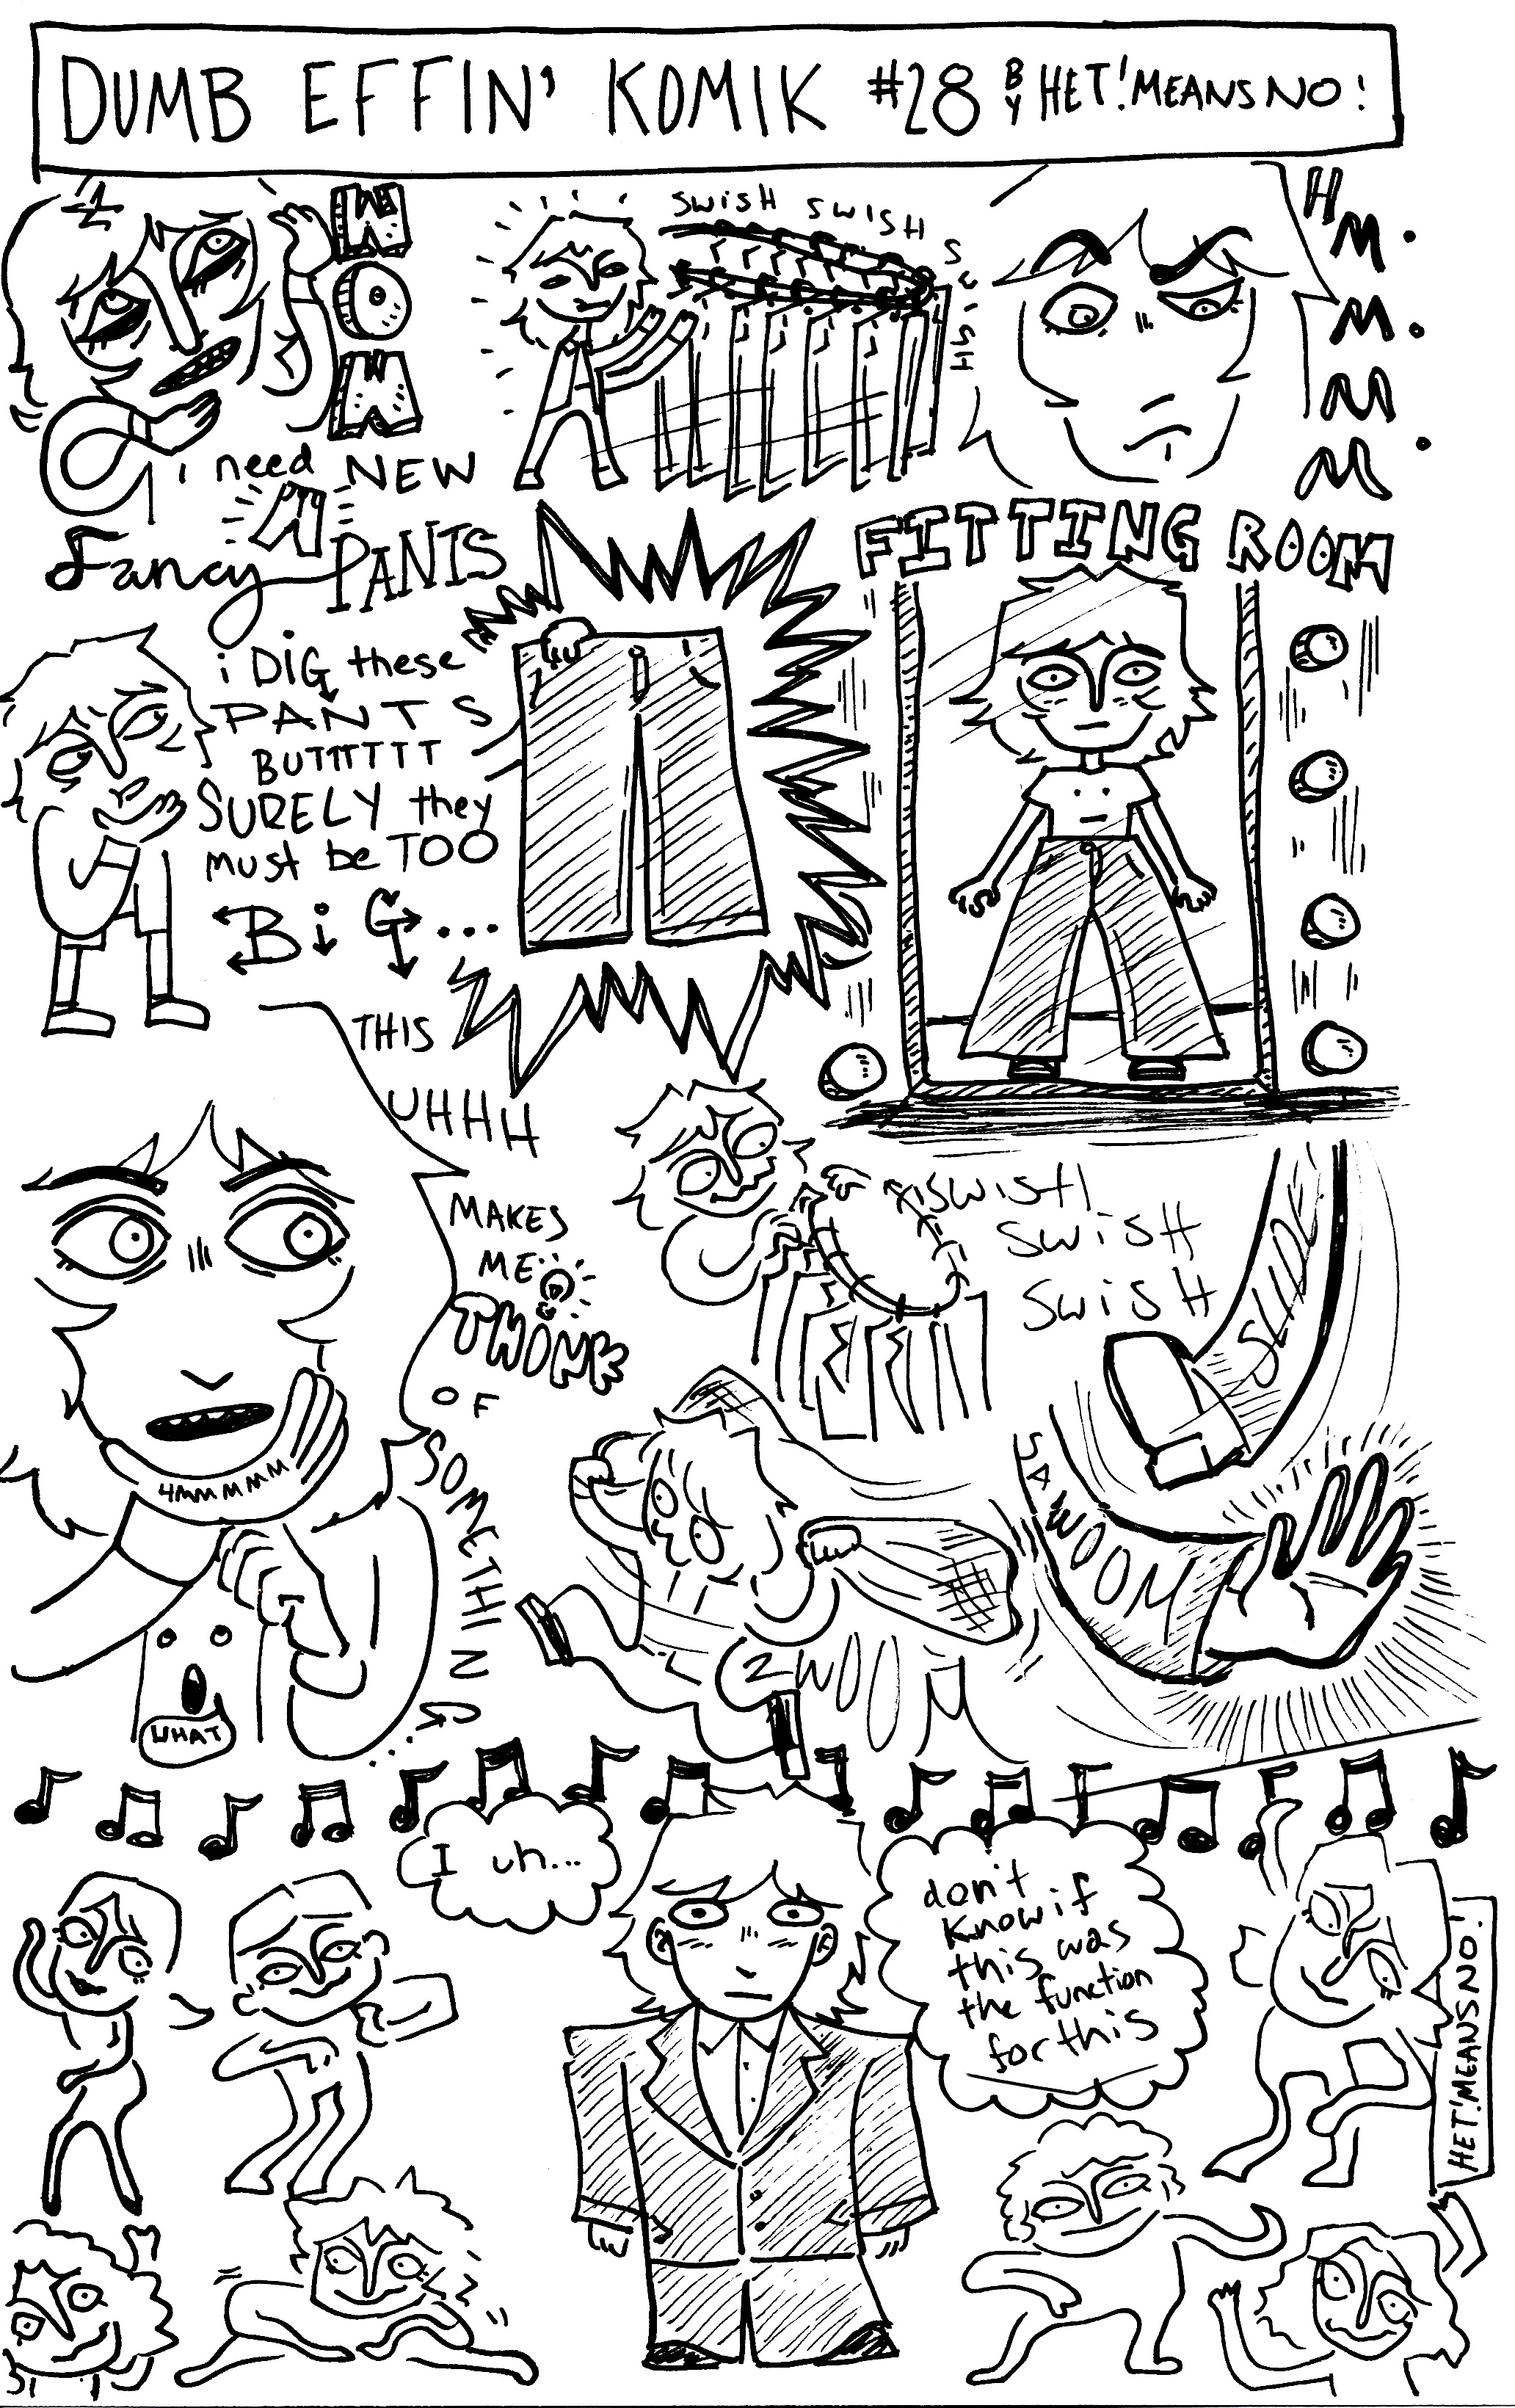 DUMB EFFIN' KOMIK #28 BY HET! MEANS NO!
WOW
i need NEW
Fancy PANTS
SWISH SWISH SWISH
HM.M.M.M.
i DIG these
PANTS
BUTTTTTT
SURELY they
must be TOO
BiG...
FITTING ROOM
THIS
UHHH
MAKES
ME
THINK
OF
SOMETHING...
HMMMMM
WHAT
SWISH
SWISH
SWISH
SLIDE
ZWOOM
I uh...
don't
know if
this was
the function
for this
HET! MEANS NO!